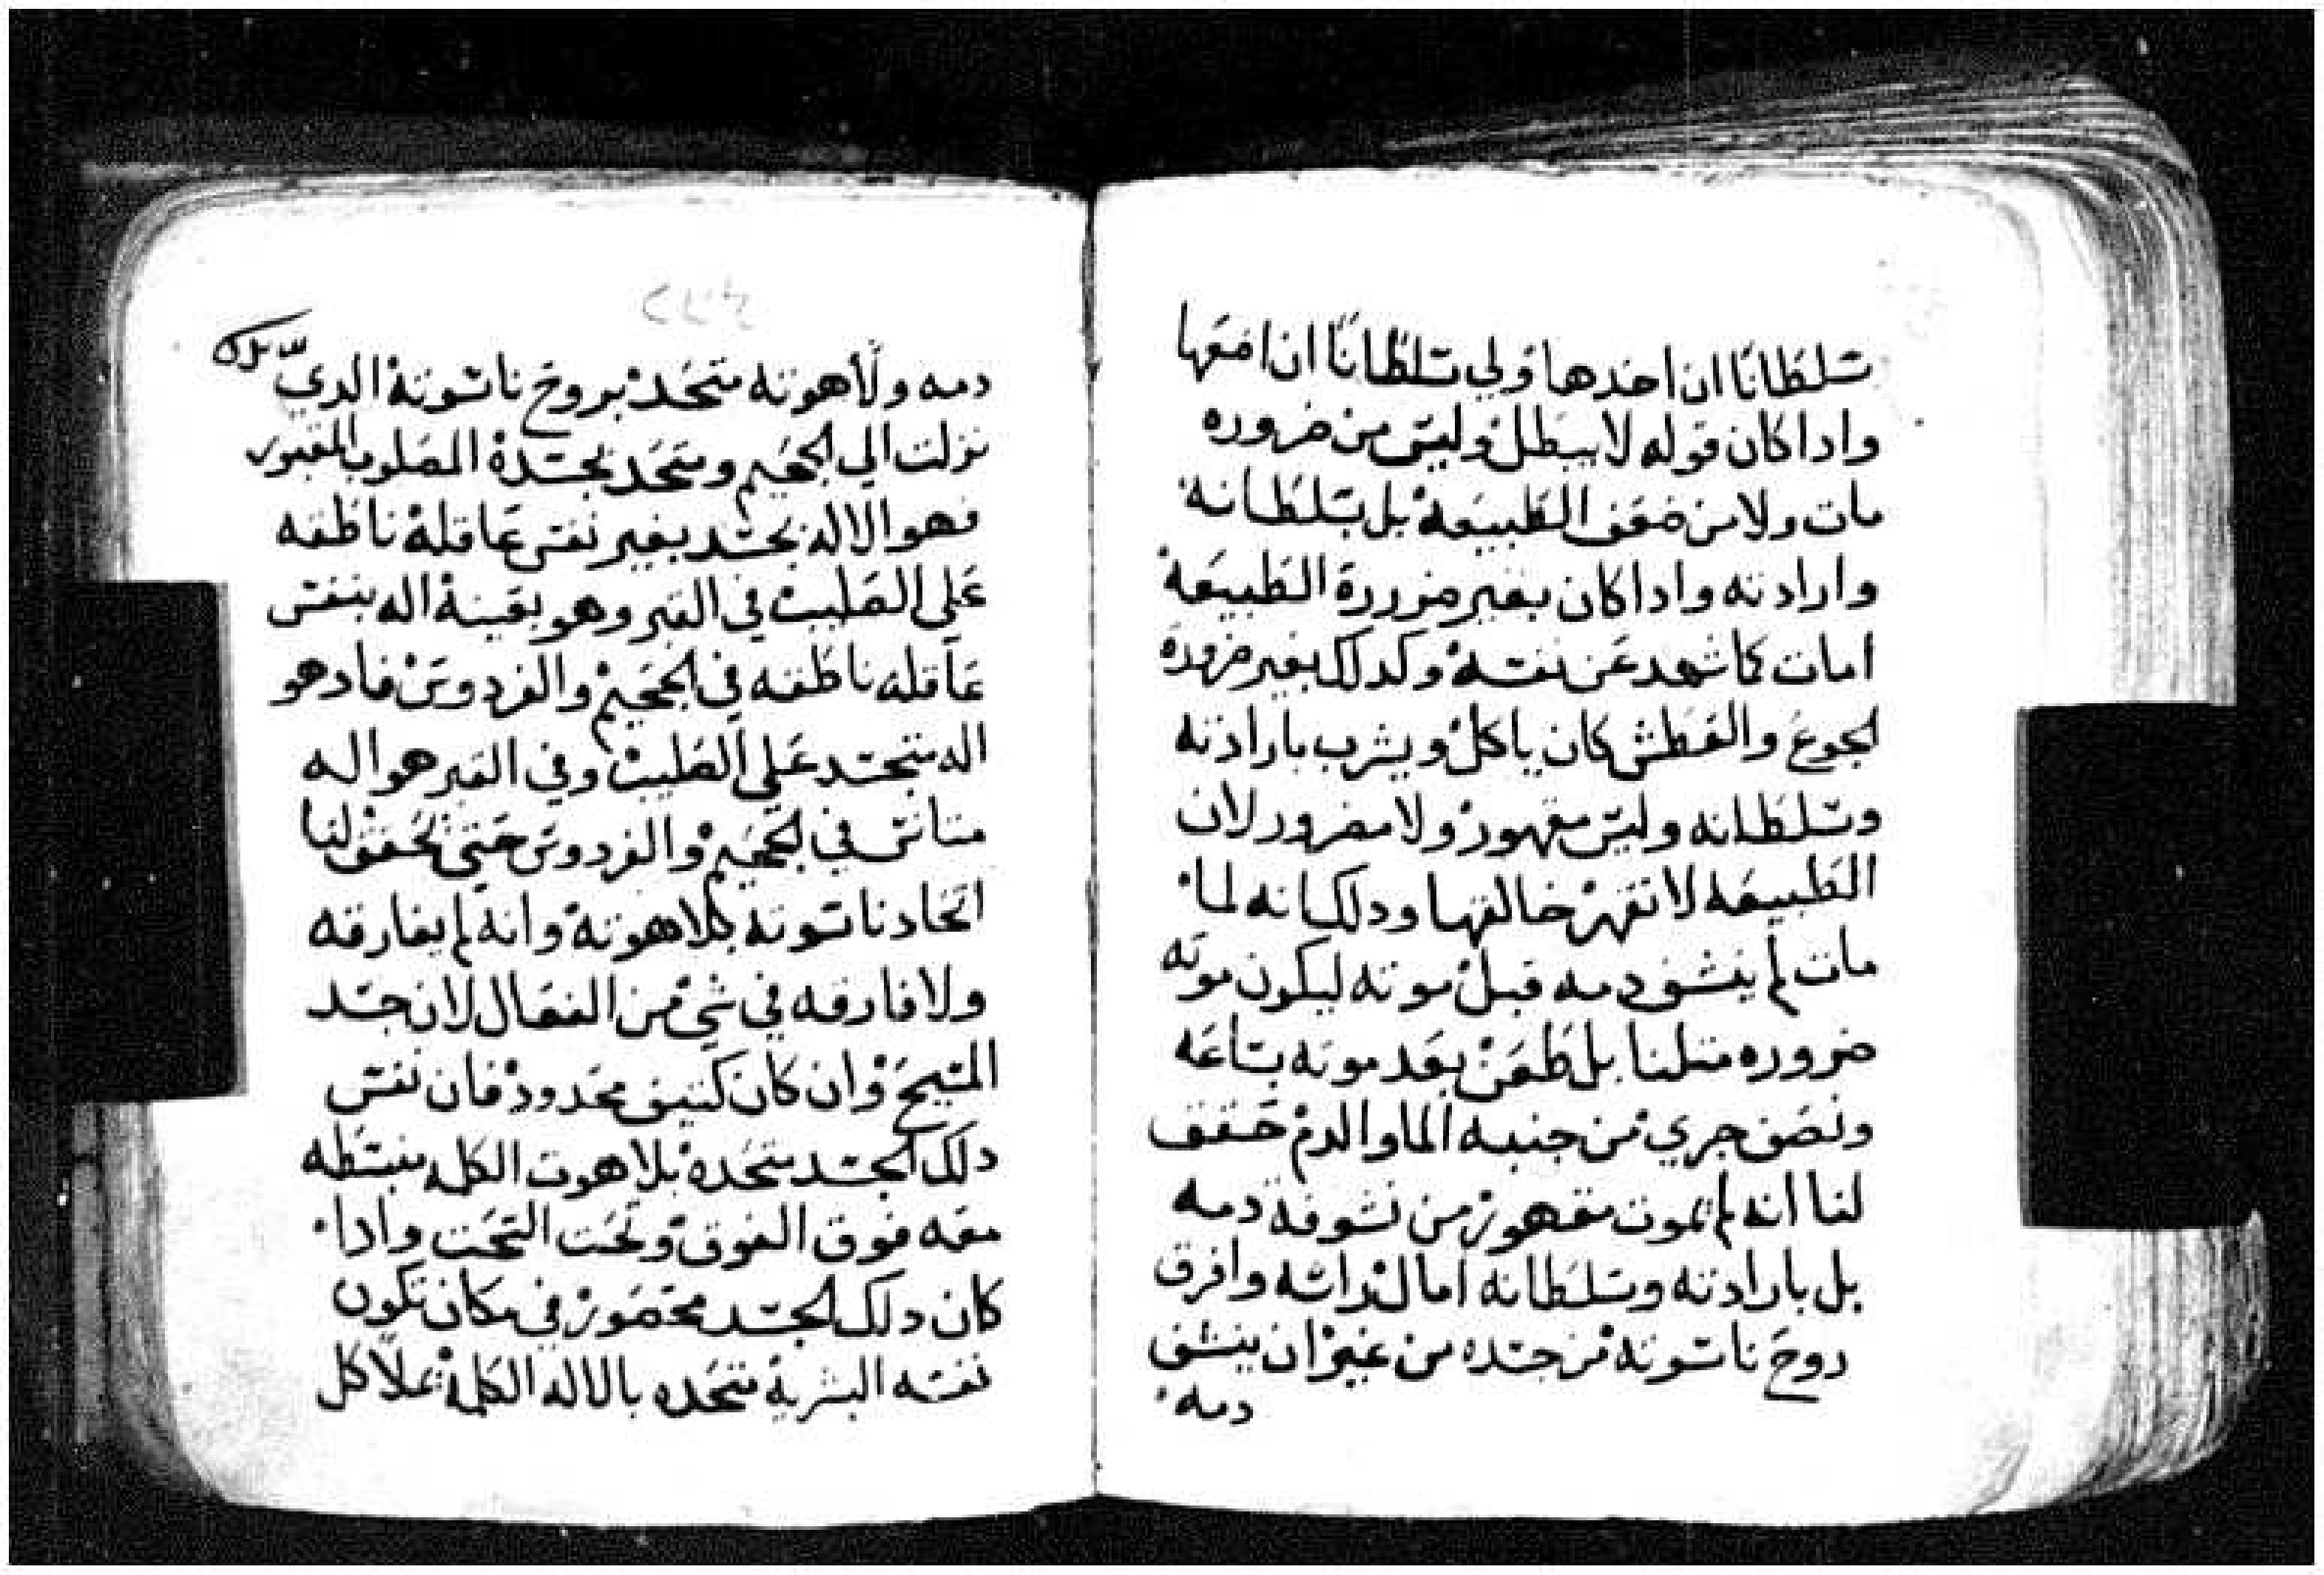 سلطانا ان اخدها ولي سلطانا ان اضعها
وادا كان قوله لا يبطل وليس من ضروره
مات ولا من ضعف الطبيعة بل بسلطانه
وارادته وادا كان بغير ضرورة الطبيعة
امات كما شهد عن نفسه وكدلك بغير ضروره
لجوع والعطش كان ياكل ويشرب بارادته
وسلطانه وليس مقهور ولا مضرور لان
الطبيعه لا تقهر خالقها ودلك انه لما
مات لم ينشف دمه قبل موته ليكون موته
ضروره متلنا بل طعن بعد موته بساعه
ونصف جري من جنبه الما والدم حقق
لنا انه لم يموت مقهور من نشوفة دمه
بل بارادته وسلطانه امال راسه وافرق
روح ناسوته من جسده من غير ان ينشف
دمه
دمه ولاهوته متحد بروح ناسوته الدي
نزلت الي الجحيم ومتحد بجسده المصلوب المقبور
فهو الاله بجسد بغير نفس عاقلة ناطقه
علي الصليب في القبر وهو بعينة اله بنفس
عاقله ناطقه في الجحيم والفردوس فاد هو
اله متجسد علي الصليب وفي القبر هو اله
متانس في الجحيم والفردوس حتي تحقق لنا
اتحاد ناسوته بلاهوته وانه لم يفارقه
ولا فارقه في شي من الفعال لان جسد
المسيح وان كان كتيف محدود فان نفس
دلك الجسد متحده بلاهوت الكله منبسطه
معه فوق الفوق وتحت التحت وادا
كان دلك الجسد محصور في مكان تكون
نفسه البشرية متحده بالاله الكلمة تملا كل